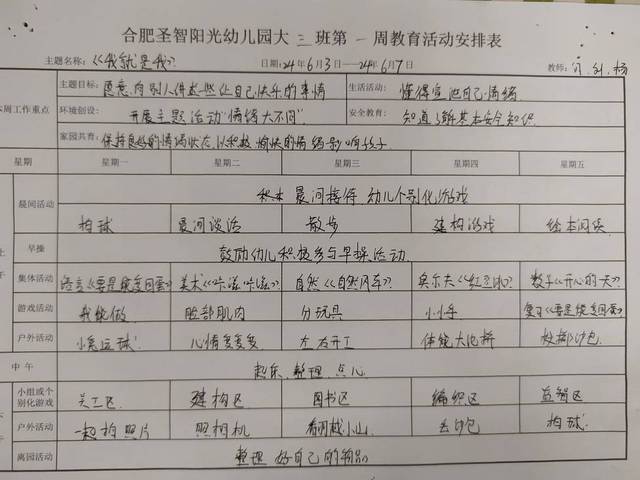 合肥圣智阳光幼儿园大三班第一周教育活动安排表
主题名称:《我就是我》 日期:24年6月3日—24年6月7日 教师:
本周工作重点
主题目标: 愿意向别人讲述些让自己快乐的事情 生活活动: 懂得宣泄自己情绪
环境创设: 开展主题活动"情绪大不同" 安全教育: 知道了解基本安全知识
家园共育: 保持良好的情绪状态,以积极愉快的情绪影响孩子
星期 星期一 星期二 星期三 星期四 星期五
晨间活动 积木 晨间接待 幼儿个别化游戏
拍球 晨间谈话 散步 建构游戏 绘本阅读
早操 鼓励幼儿积极参与早操活动
集体活动 语言 美术《咔嗞咔嗞》 自然《自然风车》 奥尔夫 数学《开心的一天》
游戏活动 我能做 脸部肌肉 分玩具 小小手 复习
户外活动 小兔运球 心情变变变 左右开工 体能大比拼 投掷沙包
中午 起床、整理、点心
小组或个别化游戏 美工区 建构区 图书区 编织区 益智区
户外活动 一起拍照片 照相机 看谁越小山 丢沙包 拍球
离园活动 整理好自己的物品